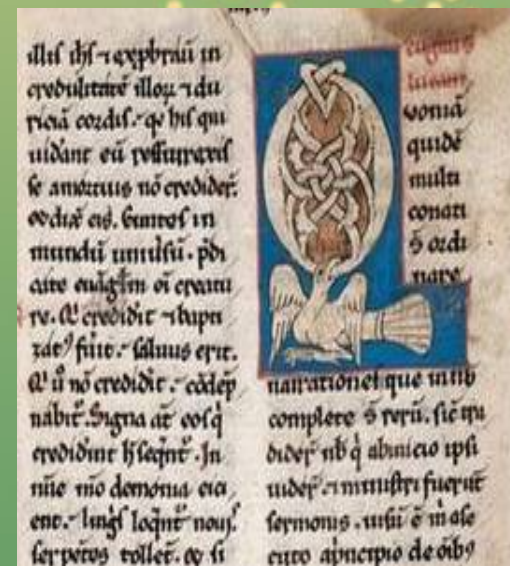 illis ihs ⁊ exprobrauit in
credulitatē illoꝝ ⁊ du
riciā cordis. qͥ his qui
uidant eū resurrexis
se a mortuis nō credider̄.
⁊ dix̄ eis. Euntes in
mundū uniuersū. p̄di
cate euāgłm oī creatu
re. Qͥ credidit ⁊ bapti
zatꝰ fuit. saluus erit.
Qͥ ū nō credidit. cōdēp
nabit̄. Signa at̄ eos q̇
credidint h̄ seqnt̄. In
nōie mō demonia eici
ent. lingͥs loqnt̄ nouis.
serpētes tollēt. ⁊ si
lucam
Q
uoniā
quidē
multi
conati
s̄ ordi
nare
narrationes que in nob
complete s̄ rerū. sic̄ tra
dider̄ nob̄ q̇ ab inicio ipsi
uider̄. ⁊ ministri fuerūt
sermonis. uisū ē
cuto a principio de oibꝰ